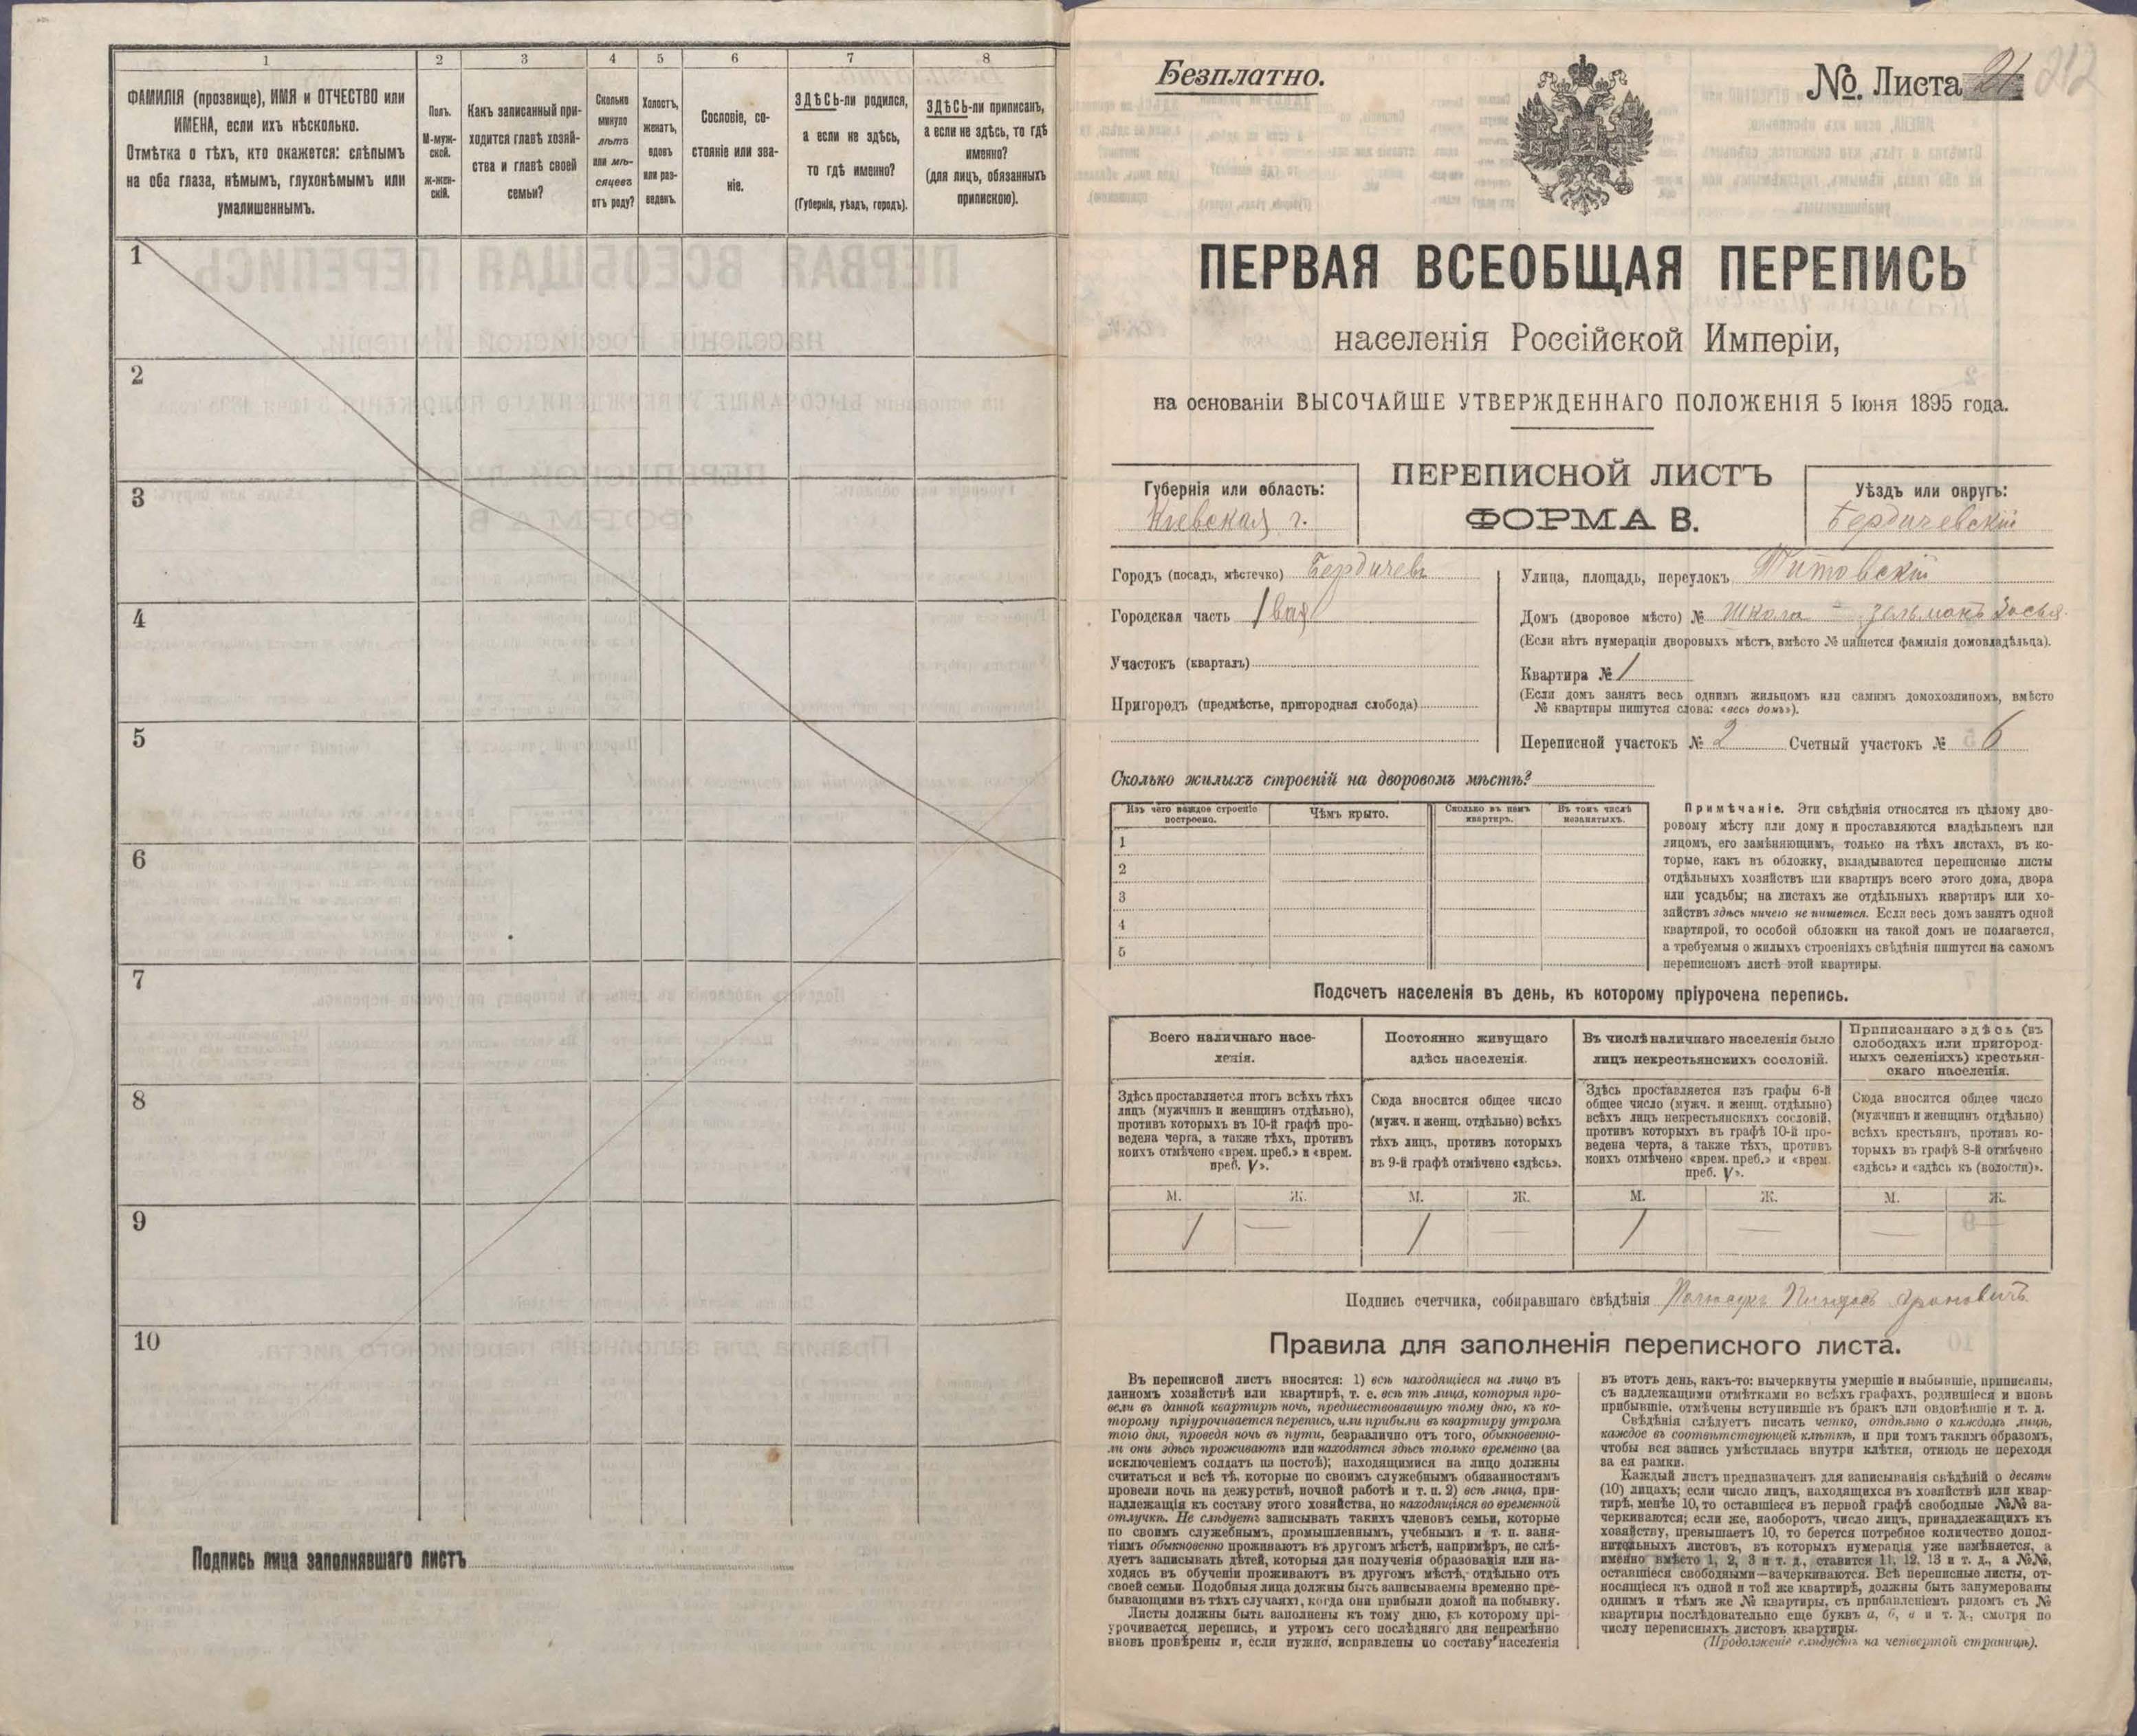 1 2 3 4 5 6 7 8
ФАМИЛІЯ (прозвище), ИМЯ и ОТЧЕСТВО или
ИМЕНА, если ихъ нѣсколько.
Отмѣтка о тѣхъ, кто окажется: слѣпымъ
на оба глаза, нѣмымъ, глухонѣмымъ или
умалишеннымъ.
Полъ.
М-муж-
ской.
ж-жен-
скій.
Какъ записанный при-
ходится главѣ хозяй-
ства и главѣ своей
семьи?
Сколько
минуло
лѣтъ
или мѣ-
сяцевъ
отъ роду?
Холостъ,
женатъ,
вдовъ
или раз-
веденъ.
Сословіе, со-
стояніе или зва-
ніе.
ЗДѢСЬ-ли родился,
а если не здѣсь,
то гдѣ именно?
(Губернія, уѣздъ, городъ).
ЗДѢСЬ-ли приписанъ,
а если не здѣсь, то гдѣ
именно?
(для лицъ, обязанныхъ
припискою).
1
2
3
4
5
6
7
8
9
10
Подпись лица заполнявшаго листъ
Безплатно.
№. Листа 21 212
ПЕРВАЯ ВСЕОБЩАЯ ПЕРЕПИСЬ
населенія Россійской Имперіи,
на основаніи ВЫСОЧАЙШЕ УТВЕРЖДЕННАГО ПОЛОЖЕНІЯ 5 Іюня 1895 года.
Губернія или область:
Кіевская г.
ПЕРЕПИСНОЙ ЛИСТЪ
ФОРМА В.
Уѣздъ или округъ:
Бердичевскій
Городъ (посадъ, мѣстечко) Бердичевъ
Городская часть 1вая
Участокъ (кварталъ)
Пригородъ (предмѣстье, пригородная слобода)
Улица, площадь, переулокъ Титовскій
Домъ (дворовое мѣсто) № Школа - Зельманъ
(Если нѣтъ нумераціи дворовыхъ мѣстъ, вмѣсто № пишется фамилія домовладѣльца).
Квартира № 1
(Если домъ занятъ весь однимъ жильцомъ или самимъ домохозяиномъ, вмѣсто
№ квартиры пишутся слова: «весь домъ»).
Переписной участокъ № 2 Счетный участокъ № 6
Сколько жилыхъ строеній на дворовомъ мѣстѣ?
Изъ чего каждое строеніе
построено.
Чѣмъ крыто.
Сколько въ немъ
квартиръ.
Въ томъ числѣ
незанятыхъ.
1
2
3
4
5
Примѣчаніе. Эти свѣдѣнія относятся къ цѣлому дво-
ровому мѣсту или дому и проставляются владѣльцемъ или
лицомъ, его замѣняющимъ, только на тѣхъ листахъ, въ ко-
торые, какъ въ обложку, вкладываются переписные листы
отдѣльныхъ хозяйствъ или квартиръ всего этого дома, двора
или усадьбы; на листахъ же отдѣльныхъ квартиръ или хо-
зяйствъ здѣсь ничего не пишется. Если весь домъ занятъ одной
квартирой, то особой обложки на такой домъ не полагается,
а требуемыя о жилыхъ строеніяхъ свѣдѣнія пишутся на самомъ
переписномъ листѣ этой квартиры.
Подсчетъ населенія въ день, къ которому пріурочена перепись.
Всего наличнаго насе-
ленія.
Постоянно живущаго
здѣсь населенія.
Въ числѣ наличнаго населенія было
лицъ некрестьянскихъ сословій.
Приписаннаго здѣсь (въ
слободахъ или пригород-
ныхъ селеніяхъ) крестьян-
скаго населенія.
Здѣсь проставляется итогъ всѣхъ тѣхъ
лицъ (мужчинъ и женщинъ отдѣльно),
противъ которыхъ въ 10-й графѣ про-
ведена черта, а также тѣхъ, противъ
коихъ отмѣчено «врем. преб.» и «врем.
преб. V».
Сюда вносится общее число
(мужч. и женщ. отдѣльно) всѣхъ
тѣхъ лицъ, противъ которыхъ
въ 9-й графѣ отмѣчено «здѣсь».
Здѣсь проставляется изъ графы 6-й
общее число (мужч. и женщ. отдѣльно)
всѣхъ лицъ некрестьянскихъ сословій,
противъ которыхъ въ графѣ 10-й про-
ведена черта, а также тѣхъ, противъ
коихъ отмѣчено «врем. преб.» и «врем.
преб. V».
Сюда вносится общее число
(мужчинъ и женщинъ отдѣльно)
всѣхъ крестьянъ, противъ ко-
торыхъ въ графѣ 8-й отмѣчено
«здѣсь» и «здѣсь къ (волости)».
М. Ж. М. Ж. М. Ж. М. Ж.
1 — 1 — 1 — — —
Подпись счетчика, собиравшаго свѣдѣнія Пинхасъ Ароновичъ
Правила для заполненія переписного листа.
Въ переписной листъ вносятся: 1) всѣ находящіеся на лицо въ
данномъ хозяйствѣ или квартирѣ, т. е. всѣ тѣ лица, которыя про-
вели въ данной квартирѣ ночь, предшествовавшую тому дню, къ ко-
торому пріурочивается перепись, или прибыли въ квартиру утромъ
того дня, проведя ночь въ пути, безразлично отъ того, обыкновенно-
ли они здѣсь проживаютъ или находятся здѣсь только временно (за
исключеніемъ солдатъ на постоѣ); находящимися на лицо должны
считаться и всѣ тѣ, которые по своимъ служебнымъ обязанностямъ
провели ночь на дежурствѣ, ночной работѣ и т. п. 2) всѣ лица, при-
надлежащія къ составу этого хозяйства, но находящіяся во временной
отлучкѣ. Не слѣдуетъ записывать такихъ членовъ семьи, которые
по своимъ служебнымъ, промышленнымъ, учебнымъ и т. п. заня-
тіямъ обыкновенно проживаютъ въ другомъ мѣстѣ, напримѣръ, не слѣ-
дуетъ записывать дѣтей, которыя для полученія образованія или на-
ходясь въ обученіи проживаютъ въ другомъ мѣстѣ, отдѣльно отъ
своей семьи. Подобныя лица должны быть записываемы временно пре-
бывающими въ тѣхъ случаяхъ, когда они прибыли домой на побывку.
Листы должны быть заполнены къ тому дню, къ которому прі-
урочивается перепись, и утромъ сего послѣдняго дня непремѣнно
вновь провѣрены и, если нужно, исправлены по составу населенія
въ этотъ день, какъ-то: вычеркнуты умершіе и выбывшіе, приписаны,
съ надлежащими отмѣтками во всѣхъ графахъ, родившіеся и вновь
прибывшіе, отмѣчены вступившіе въ бракъ или овдовѣвшіе и т. д.
Свѣдѣнія слѣдуетъ писать четко, отдѣльно о каждомъ лицѣ,
каждое въ соотвѣтствующей клѣткѣ, и при томъ такимъ образомъ,
чтобы вся запись умѣстилась внутри клѣтки, отнюдь не переходя
за ея рамки.
Каждый листъ предназначенъ для записыванія свѣдѣній о десяти
(10) лицахъ; если число лицъ, находящихся въ хозяйствѣ или квар-
тирѣ, менѣе 10, то оставшіеся въ первой графѣ свободные №№ за-
черкиваются; если же, наоборотъ, число лицъ, принадлежащихъ къ
хозяйству, превышаетъ 10, то берется потребное количество допол-
нительныхъ листовъ, въ которыхъ нумерація уже измѣняется, а
именно вмѣсто 1, 2, 3 и т. д., ставится 11, 12, 13 и т. д., а №№,
оставшіеся свободными—зачеркиваются. Всѣ переписные листы, от-
носящіеся къ одной и той же квартирѣ, должны быть занумерованы
однимъ и тѣмъ же № квартиры, съ прибавленіемъ рядомъ съ №
квартиры послѣдовательно еще буквъ а, б, в и т. д., смотря по
числу переписныхъ листовъ квартиры.
(Продолженіе слѣдуетъ на четвертой страницѣ).